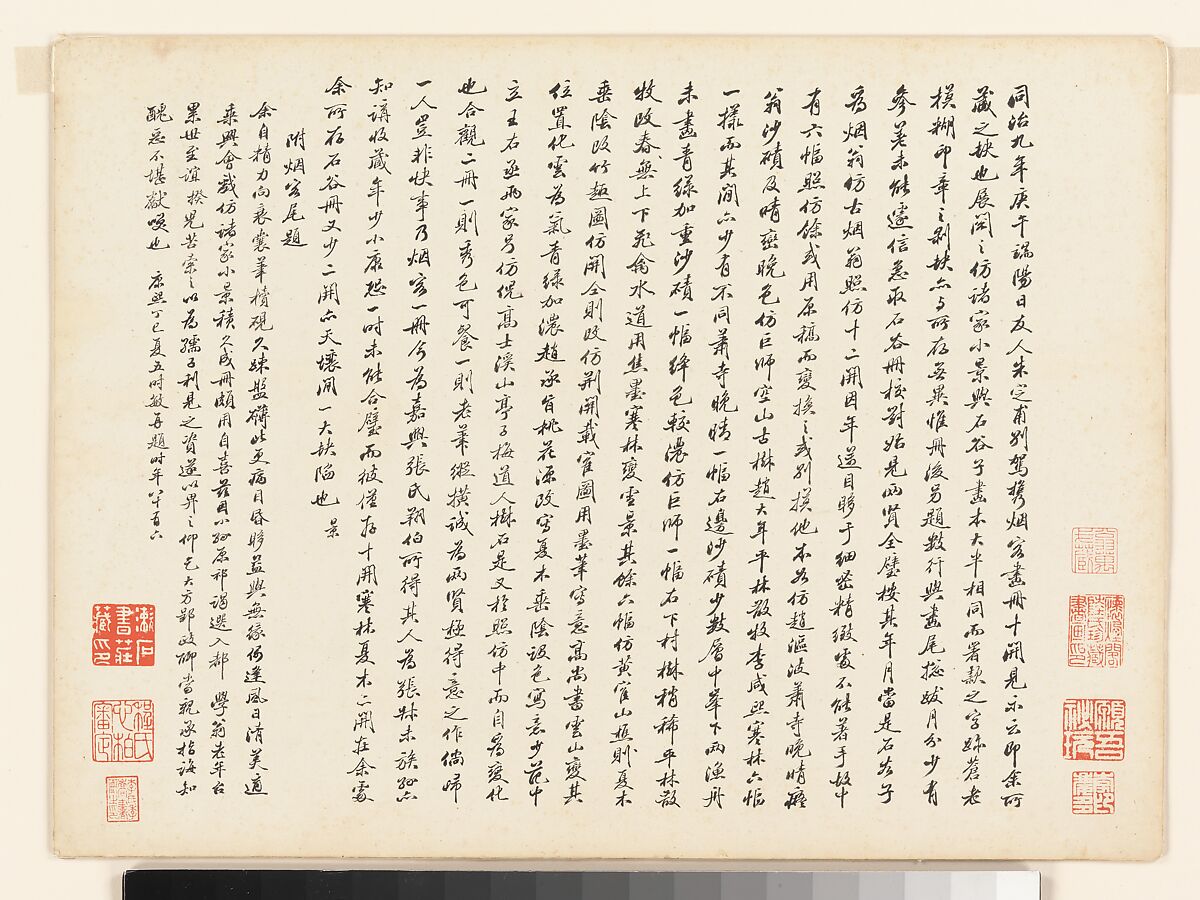 同治九年庚午端陽日友人朱定甫別駕攜烟客畫冊十開見示云即余所
藏之缺也展閱之仿諸家小景與石谷子畫本大半相同而署款之字跡蒼老
模糊印章之剥缺亦与所存無異惟冊後另題數行與畫尾總跋月分少有
參差未能遽信急取石谷冊校對始見兩賢全璧按其年月當是石谷子
為烟翁仿古烟翁照仿十二開因年邁目眵于細密精緻處不能著手故中
有六幅照仿餘或用原稿而變換之或別摸他本如仿趙漚波蕭寺晚晴癡
翁沙磧及晴巒晚色仿巨師空山古樹趙大年平林散牧李咸熙寒林六幅
一樣而其間亦少有不同蕭寺晚晴一幅右邊沙磧少數層中峯下兩漁舟
未畫青綠加重沙磧一幅絳色較濃仿巨師一幅石下村樹稍稀平林散
牧改春無上下飛禽水道用焦墨寒林變雪景其餘六幅仿黃崔山樵則夏木
垂陰改竹趣圖仿關仝則改仿荆關載寉圖用墨筆寫意高尚書雲山變其
位置化雲為氣青綠加濃趙承旨桃花源改寫夏木垂陰設色寫意少范中
立王右丞兩家另仿倪高士溪山亭子梅道人樹石是又於照仿中而自為變化
也合觀二冊一則秀色可餐一則老筆縱橫誠為兩賢極得意之作倘歸
一人豈非快事乃烟客一冊今為嘉興張氏翔伯所得其人為張叔未族孫亦
知講收藏年少小康恐一時未能合璧而彼僅存十開寒林夏木二開在余處
余所存石谷冊又少二開亦天壤間一大缺陷也 景
附烟客尾題
余自精力向衰囊筆櫝硯久疎盤礴此更病目昏眵益與無緣仍逢風日清美適
乘興會戲仿諸家小景積久成冊頗用自喜茲因小孫原祁謁選入都 學翁老年台
累世至誼撥冗苦索之以為孺子利見之資遂以畀之仰乞大方鄙政卿當親承指誨知
醜惡不堪獻噱也 康熙丁巳夏五時敏再題時年八十有六
潄石
書莊
藏印
程氏
心柏
審定
顧吾